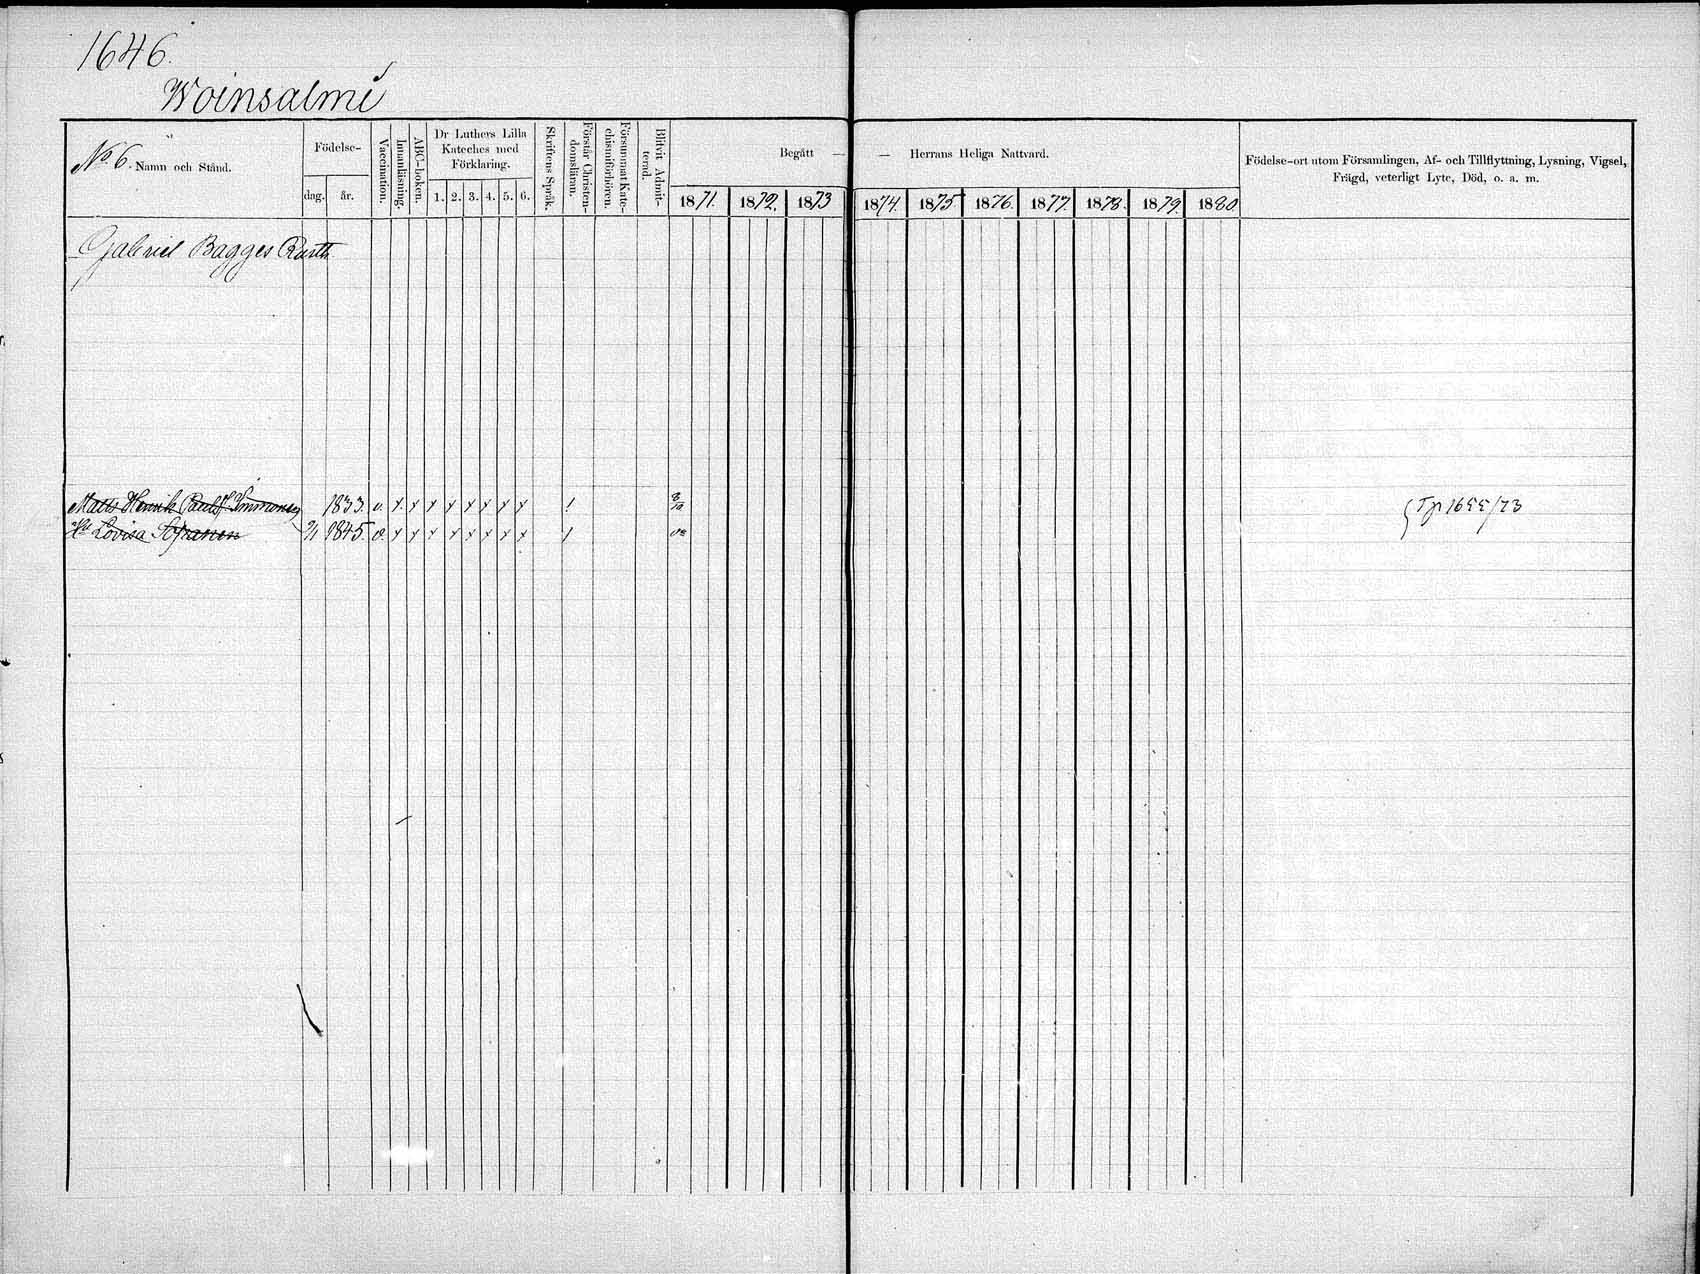 1646.
Woinsalmi
No 6. Namn och Stånd.
Födelse-
dag. år.
Vaccination.
Innanläsning.
ABC-boken.
Dr Luthers Lilla
Kateches med
Förklaring.
1. 2. 3. 4. 5. 6.
Skriftens Språk.
Förstår Christen-
domsläran.
Försummat Kate-
chismiförhören.
Blifvit Admit-
terad.
Begått — — Herrans Heliga Nattvard.
1871. 1872. 1873 1874. 1875. 1876. 1877. 1878. 1879. 1880
Födelse-ort utom Församlingen, Af- och Tillflyttning, Lysning, Vigsel,
Frägd, veterligt Lyte, Död, o. a. m.
Gabriel Bagges
Matts Henrik Immonen 1833. v. x x x x x x x x !
Lovisa 1845. v. x x x x x x x x /
1655/73